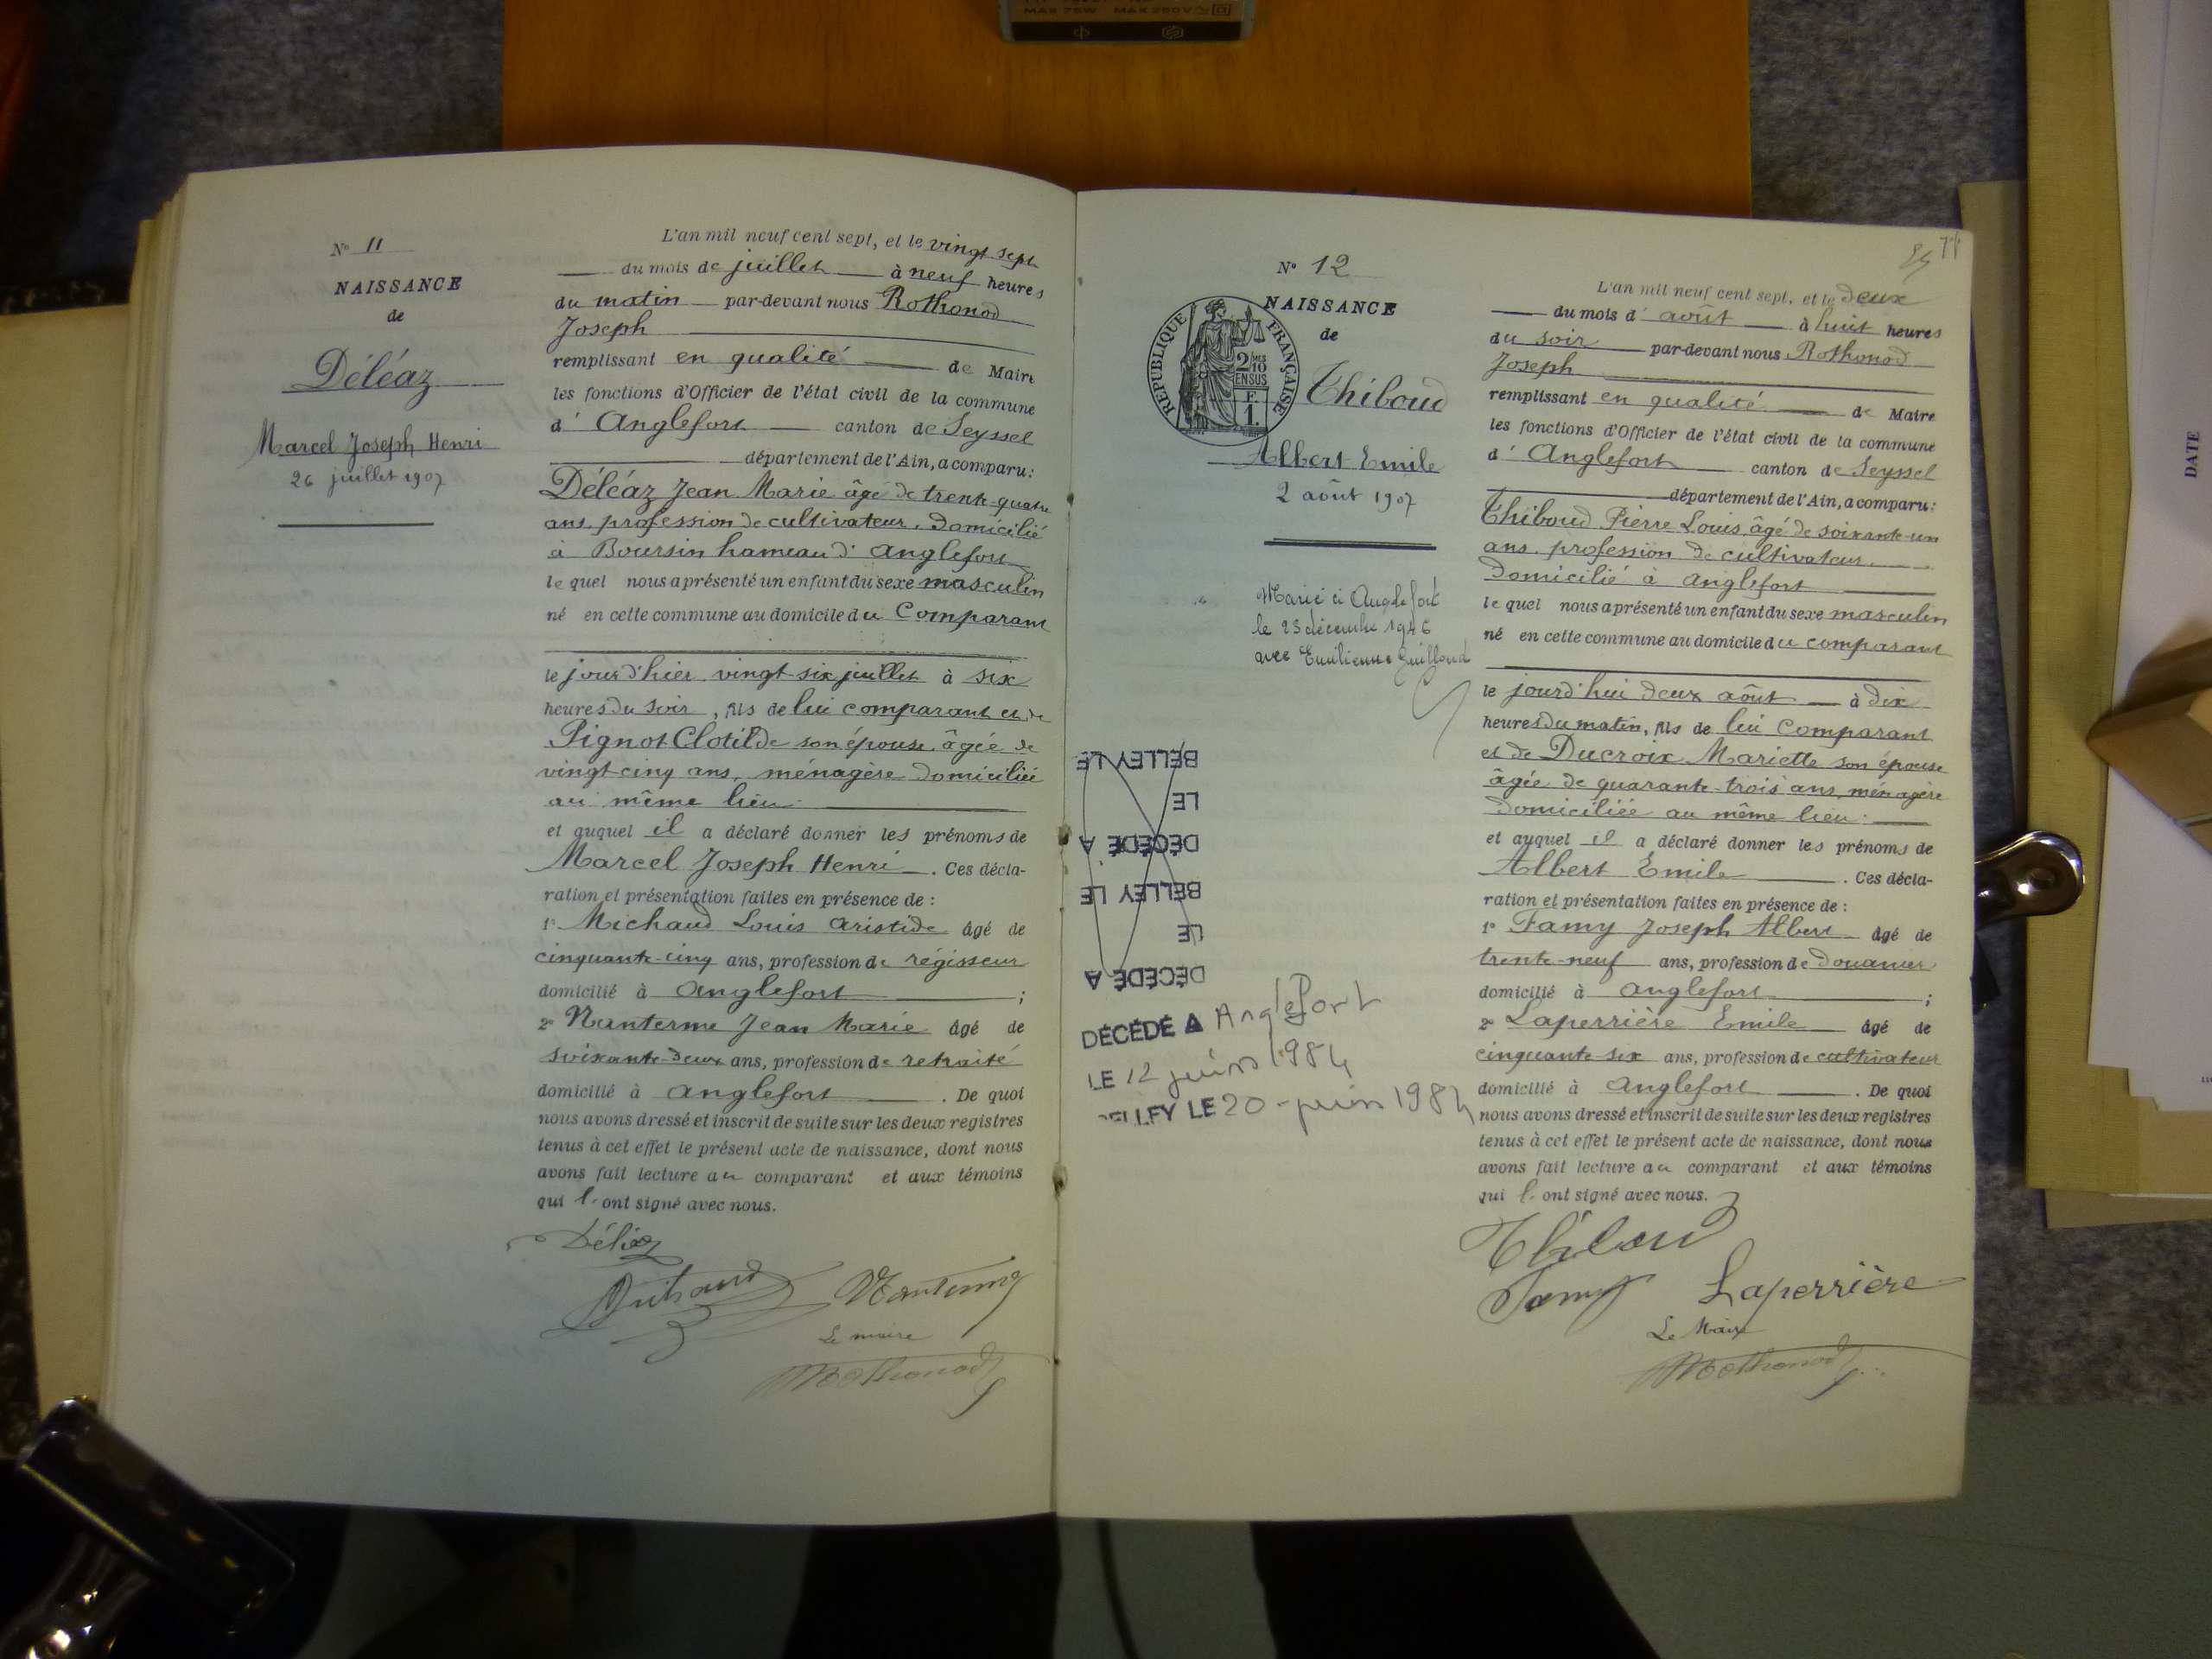 MAX 75W MAX 250V
N° 11
NAISSANCE
de
Déléaz
Marcel Joseph Henri
26 juillet 1907
L'an mil neuf cent sept, et le vingt sept
du mois de juillet à neuf heures
du matin par-devant nous Rothonod
Joseph
remplissant en qualité de Maire
les fonctions d'Officier de l'état civil de la commune
d' Anglefort canton de Seyssel
département de l'Ain, a comparu:
Déléaz Jean Marie âgé de trente-quatre
ans, profession de cultivateur, domicilié
à Boursin hameau d' Anglefort
le quel nous a présenté un enfant du sexe masculin
né en cette commune au domicile du Comparant
le jour d'hier vingt-six juillet à six
heures du soir, fils de lui comparant et de
Pignot Clotilde son épouse, âgée de
vingt-cinq ans, ménagère domiciliée
au même lieu
et auquel il a déclaré donner les prénoms de
Marcel Joseph Henri. Ces décla-
ration et présentation faites en présence de :
1° Michaud Louis Aristide âgé de
cinquante-cinq ans, profession de régisseur
domicilié à Anglefort ;
2° Nanterme Jean Marie âgé de
soixante-deux ans, profession de retraité
domicilié à Anglefort. De quoi
nous avons dressé et inscrit de suite sur les deux registres
tenus à cet effet le présent acte de naissance, dont nous
avons fait lecture au comparant et aux témoins
qui l'ont signé avec nous.
Déléaz
Michaud Nanterme
Le maire
Rothonod
N° 12
NAISSANCE
de
RÉPUBLIQUE FRANÇAISE
2/10
EN SUS
F.
1.
Thiboud
Albert Emile
2 août 1907
Marié à Anglefort
le 23 décembre 1946
avec Emilienne Guilloud
BELLEY LE
LE
DÉCÉDÉ A
BELLEY LE
LE
DÉCÉDÉ A
DÉCÉDÉ A Anglefort
LE 12 juin 1984
BELLEY LE 20 juin 1984
L'an mil neuf cent sept, et le deux
du mois d' août à huit heures
du soir par-devant nous Rothonod
Joseph
remplissant en qualité de Maire
les fonctions d'Officier de l'état civil de la commune
d' Anglefort canton de Seyssel
département de l'Ain, a comparu:
Thiboud Pierre Louis, âgé de soixante-un
ans, profession de cultivateur
domicilié à Anglefort
le quel nous a présenté un enfant du sexe masculin
né en cette commune au domicile du comparant
le jourd'hui deux août à dix
heures du matin, fils de lui Comparant
et de Ducroix Mariette son épouse
âgée de quarante-trois ans, ménagère
domiciliée au même lieu
et auquel il a déclaré donner les prénoms de
Albert Emile. Ces décla-
ration et présentation faites en présence de :
1° Famy Joseph Albert âgé de
trente-neuf ans, profession de douanier
domicilié à Anglefort ;
2° Laperrière Emile âgé de
cinquante-six ans, profession de cultivateur
domicilié à Anglefort. De quoi
nous avons dressé et inscrit de suite sur les deux registres
tenus à cet effet le présent acte de naissance, dont nous
avons fait lecture au comparant et aux témoins
qui l'ont signé avec nous.
Thiboud
Famy Laperrière
Le Maire
Rothonod
DATE